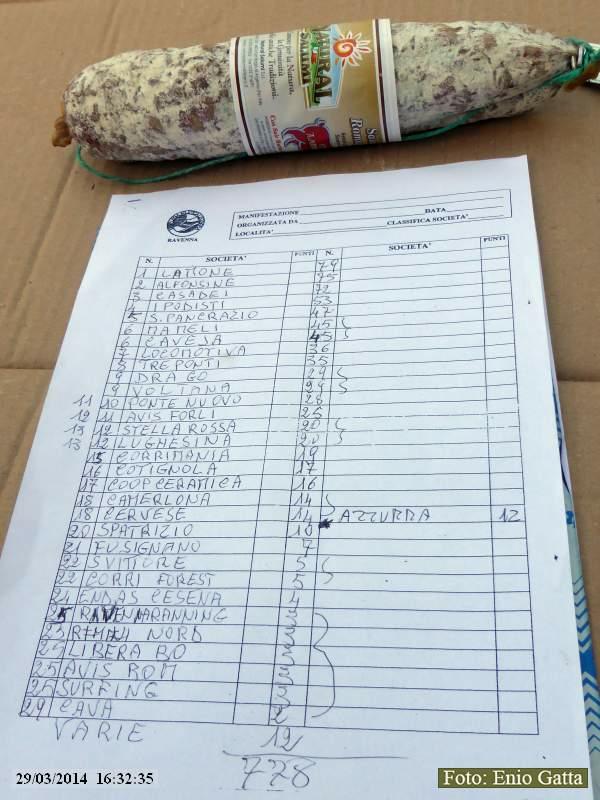 NATURAL
SALUMI
RAVENNA
MANIFESTAZIONE DATA
ORGANIZZATA DA CLASSIFICA SOCIETA'
LOCALITA'
N. SOCIETA' PUNTI N. SOCIETA' PUNTI
1 LATIONE 79
2 ALFONSINE 75
3 CASADEI 72
4 IPODISTI 53
5 S. PANCRAZIO 47
6 MAMELI 45
6 CAVEJA 45
7 LOCOMOTIVA 36
8 TRE PONTI 35
9 DRAGO 29
9 VOLTANA 29
11 10 PONTE NUOVO 28
12 11 AVIS FORLI 25
13 12 STELLA ROSSA 20
13 12 LUGHESINA 20
15 CORRIMANIA 19
16 COTIGNOLA 17
17 COOP CERAMICA 16
18 CAMERLONA 14
18 CERVESE 14 AZZURRA 12
20 S PATRIZIO 10
21 FUSIGNANO 7
22 S VITTORE 5
22 CORRI FOREST 5
24 ENDAS CESENA 4
25 RAVENNARANNING
25 RIMINI NORD
25 LIBERA BO
25 AVIS ROM
25 SURFING
29 CAVA 2
VARIE 12
778
29/03/2014 16:32:35
Foto: Enio Gatta